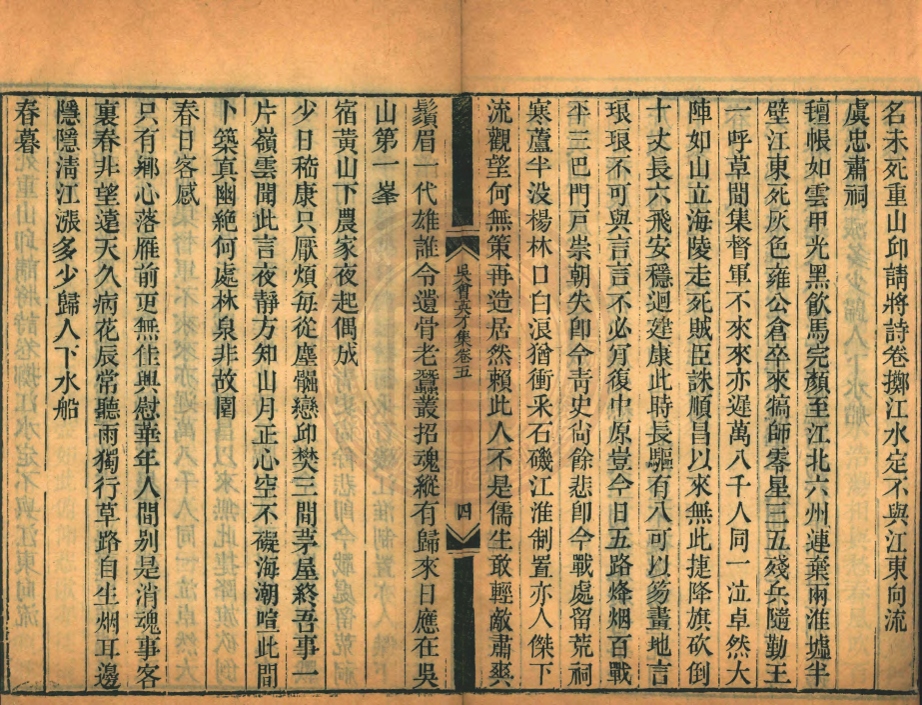 名未死重山邱請將詩卷擲江水定不與江東向流
虞忠肅祠
氊帳如雲甲光黑飲馬完顏至江北六州連棄兩淮墟半
壁江東死灰色雍公倉卒來犒師零星三五殘兵隨勤王
一呼草間集督軍不來來亦遲萬八千人同一泣卓然大
陣如山立海陵走死賊臣誅順昌以來無此捷降旗砍倒
十丈長六飛安穩迴建康此時長驅有八可以笏畫地言
琅琅不可與言言不必肎復中原豈今日五路烽烟百戰
平三巴門戸崇朝失卽今靑史尙餘悲卽今戰處留荒祠
寒蘆半没楊林口白浪猶衝采石磯江淮制置亦人傑下
流觀望何無策再造居然賴此人不是儒生敢輕敵肅爽
吳會英才集卷五
四
鬚眉一代雄誰令遺骨老蠶叢招魂縱有歸來日應在吳
山第一峯
宿黃山下農家夜起偶成
少日嵇康只厭煩每從塵鞿戀邱樊三間茅屋終吾事一
片嶺雲聞此言夜靜方知山月正心空不礙海潮喧此間
卜築真幽絶何處林泉非故園
春日客感
只有鄉心落雁前更無佳興慰華年人間别是消魂事客
裏春非望遠天久病花辰常聽雨獨行草路自生烟耳邊
隱隱淸江漲多少歸人下水船
春暮